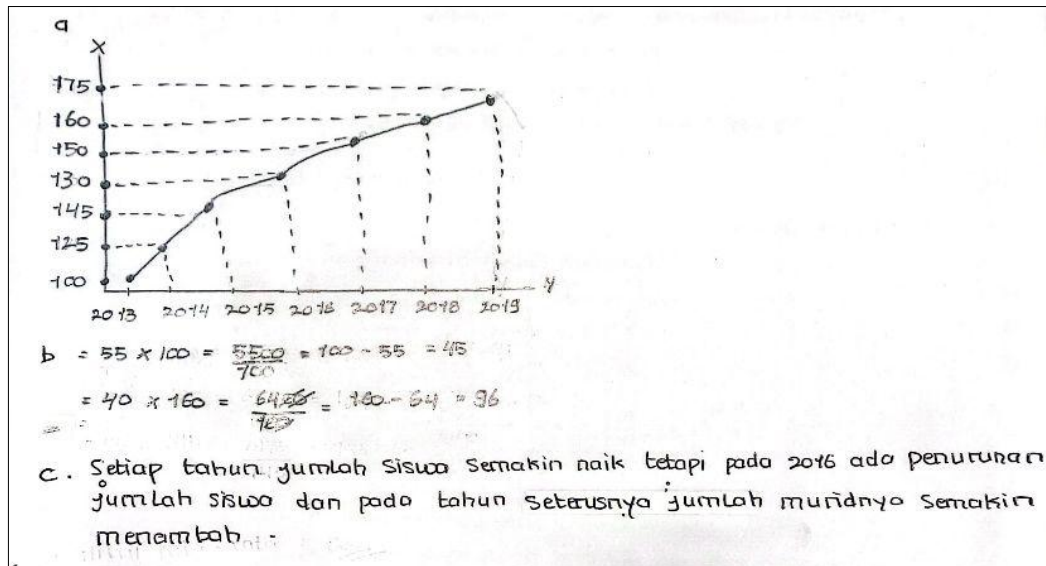 a
X
175
160
150
130
145
125
100
y
2013 2014 2015 2016 2017 2018 2019
b = 55 x 100 = 5500/100 = 100 - 55 = 45
= 40 x 160 = 6400/100 = 160 - 64 = 96
C. Setiap tahun jumlah siswa semakin naik tetapi pada 2016 ada penurunan
jumlah siswa dan pada tahun seterusnya jumlah muridnya semakin
menambah.